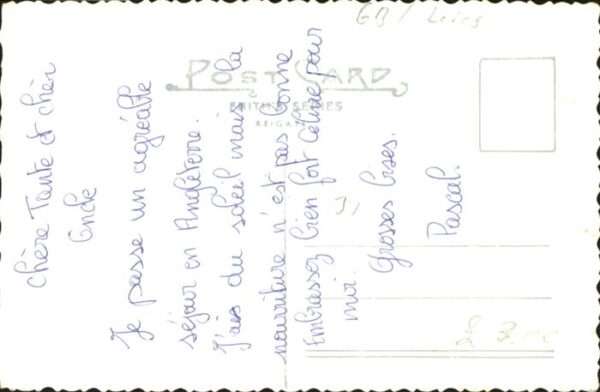 POST CARD
BRITISH SERIES
REIGATE
GB / 
chère Tante et chèr
Oncle
Je passe un agréable
séjour en Angleterre.
J'ais du soleil mais la
nourriture n'est pas bonne
Embrassez bien fort Céline pour
moi.
Grosses bises.
Pascal.